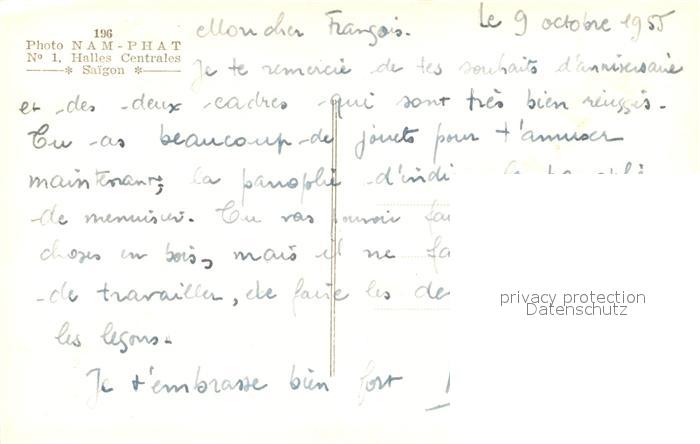 196
Photo NAM-PHAT
Nº 1, Halles Centrales
Saïgon
Le 9 octobre 1955
Mon cher François.
Je te remercie de tes souhaits d'anniversaire
et des deux cadres qui sont très bien réussis.
Tu as beaucoup de jouets pour t'amuser
maintenant; la panoplie d'indi
de menuisier. Tu vas pouvoir fai
choses en bois, mais il ne fa
de travailler, de faire les de
les leçons.
Je t'embrasse bien fort
privacy protection
Datenschutz